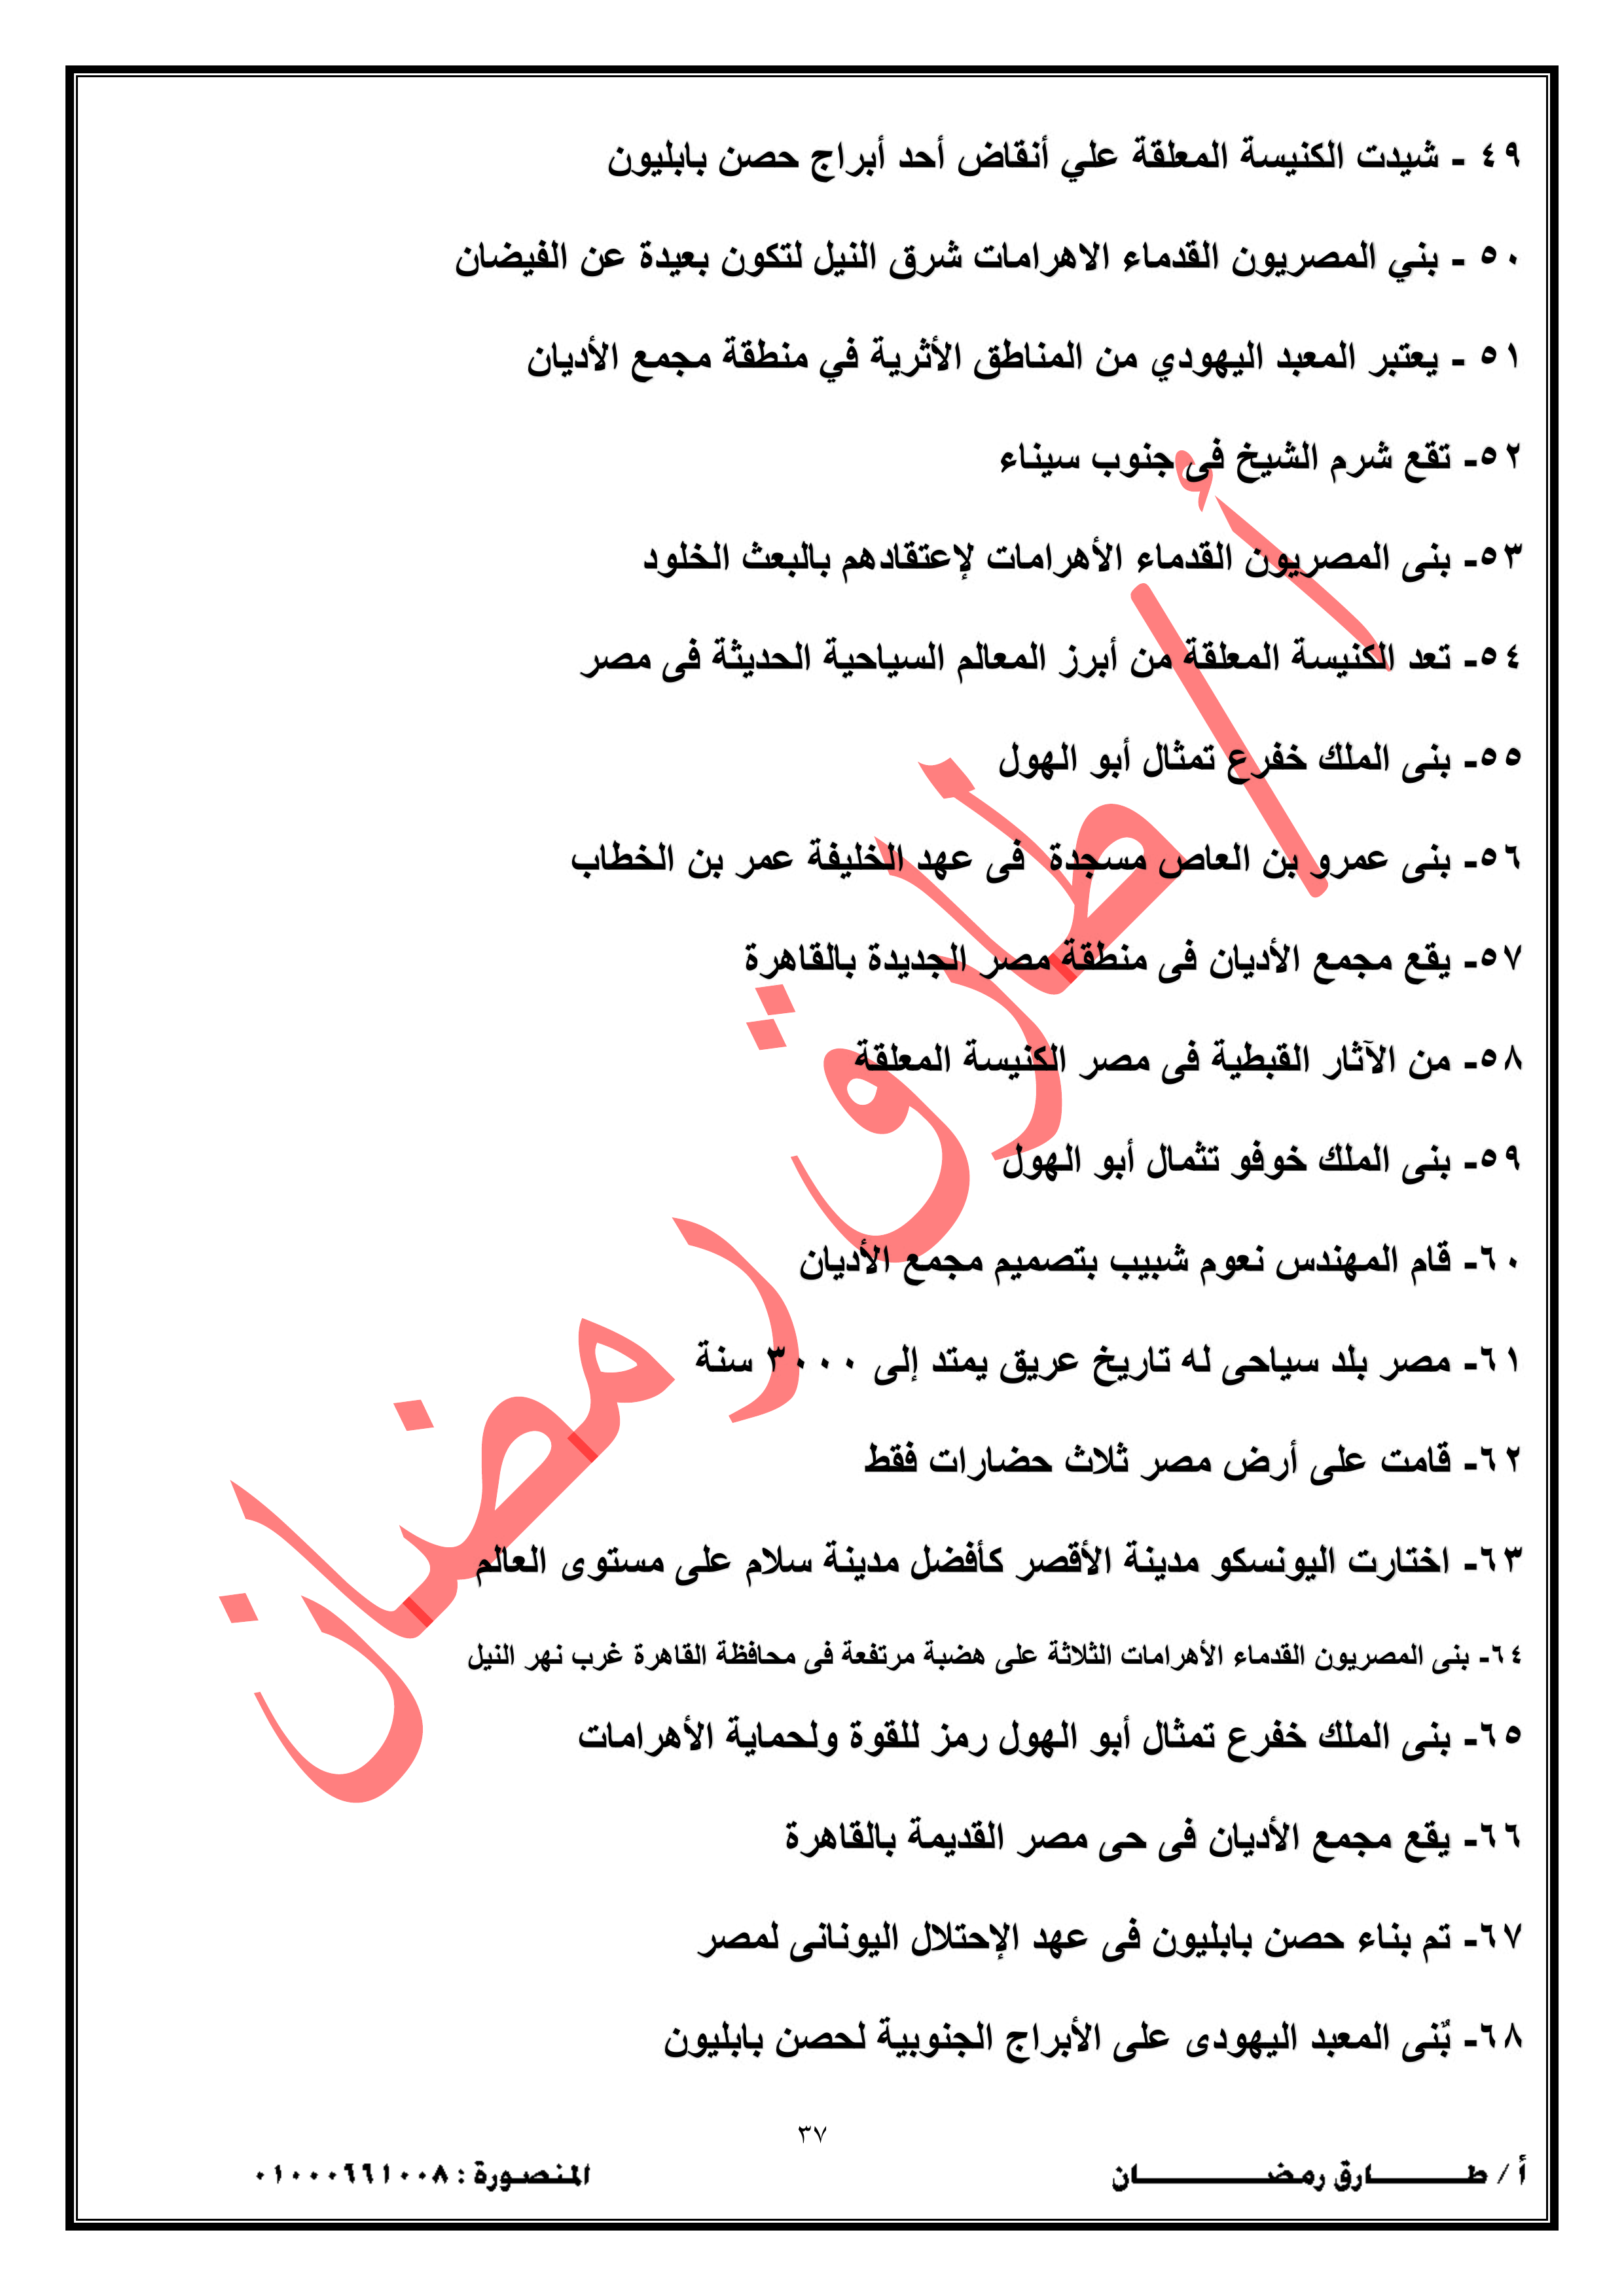 ٤٩ - شيدت الكنيسة المعلقة علي أنقاض أحد أبراج حصن بابليون
٥٠ - بني المصريون القدماء الاهرامات شرق النيل لتكون بعيدة عن الفيضان
٥١ - يعتبر المعبد اليهودي من المناطق الأثرية في منطقة مجمع الأديان
٥٢- تقع شرم الشيخ فى جنوب سيناء
٥٣- بنى المصريون القدماء الأهرامات لإعتقادهم بالبعث الخلود
٥٤- تعد الكنيسة المعلقة من أبرز المعالم السياحية الحديثة فى مصر
٥٥- بنى الملك خفرع تمثال أبو الهول
٥٦- بنى عمرو بن العاص مسجدة فى عهد الخليفة عمر بن الخطاب
٥٧- يقع مجمع الأديان فى منطقة مصر الجديدة بالقاهرة
٥٨- من الآثار القبطية فى مصر الكنيسة المعلقة
٥٩- بنى الملك خوفو تثمال أبو الهول
٦٠- قام المهندس نعوم شبيب بتصميم مجمع الأديان
٦١- مصر بلد سياحى له تاريخ عريق يمتد إلى ٣٠٠٠ سنة
٦٢- قامت على أرض مصر ثلاث حضارات فقط
٦٣- اختارت اليونسكو مدينة الأقصر كأفضل مدينة سلام على مستوى العالم
٦٤- بنى المصريون القدماء الأهرامات الثلاثة على هضبة مرتفعة فى محافظة القاهرة غرب نهر النيل
٦٥- بنى الملك خفرع تمثال أبو الهول رمز للقوة ولحماية الأهرامات
٦٦- يقع مجمع الأديان فى حى مصر القديمة بالقاهرة
٦٧- تم بناء حصن بابليون فى عهد الإحتلال اليونانى لمصر
٦٨- بٌنى المعبد اليهودى على الأبراج الجنوبية لحصن بابليون
أ / طارق رمضان
٣٧
أ / طـــــــــارق رمـضـــــــــــــان
المنصـورة : ٠١٠٠٠٦٦١٠٠٨